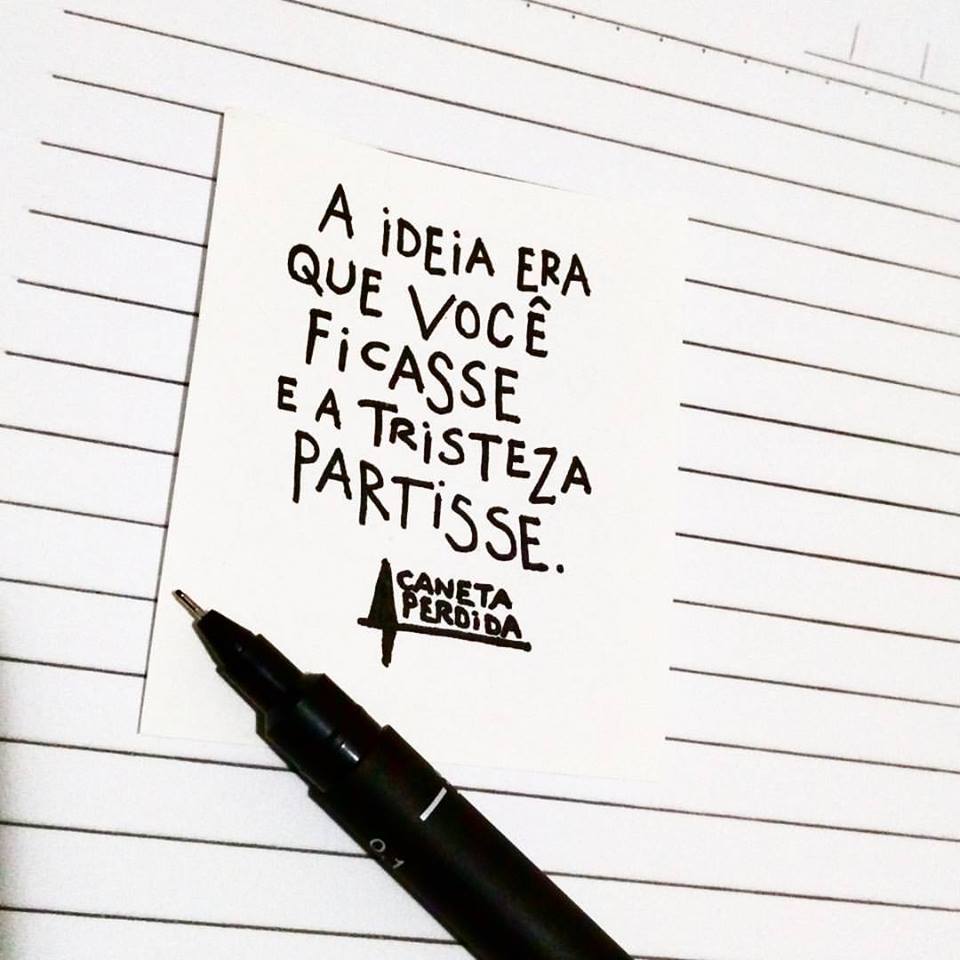 A iDEiA ERA
QUE VOCÊ
FiCASSE
E A TRiSTEZA
PARTiSSE.
A CANETA
PERDiDA
0.1